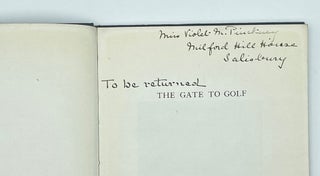 Miss Violet M. Pinckney
Milford Hill House
Salisbury
To be returned
THE GATE TO GOLF